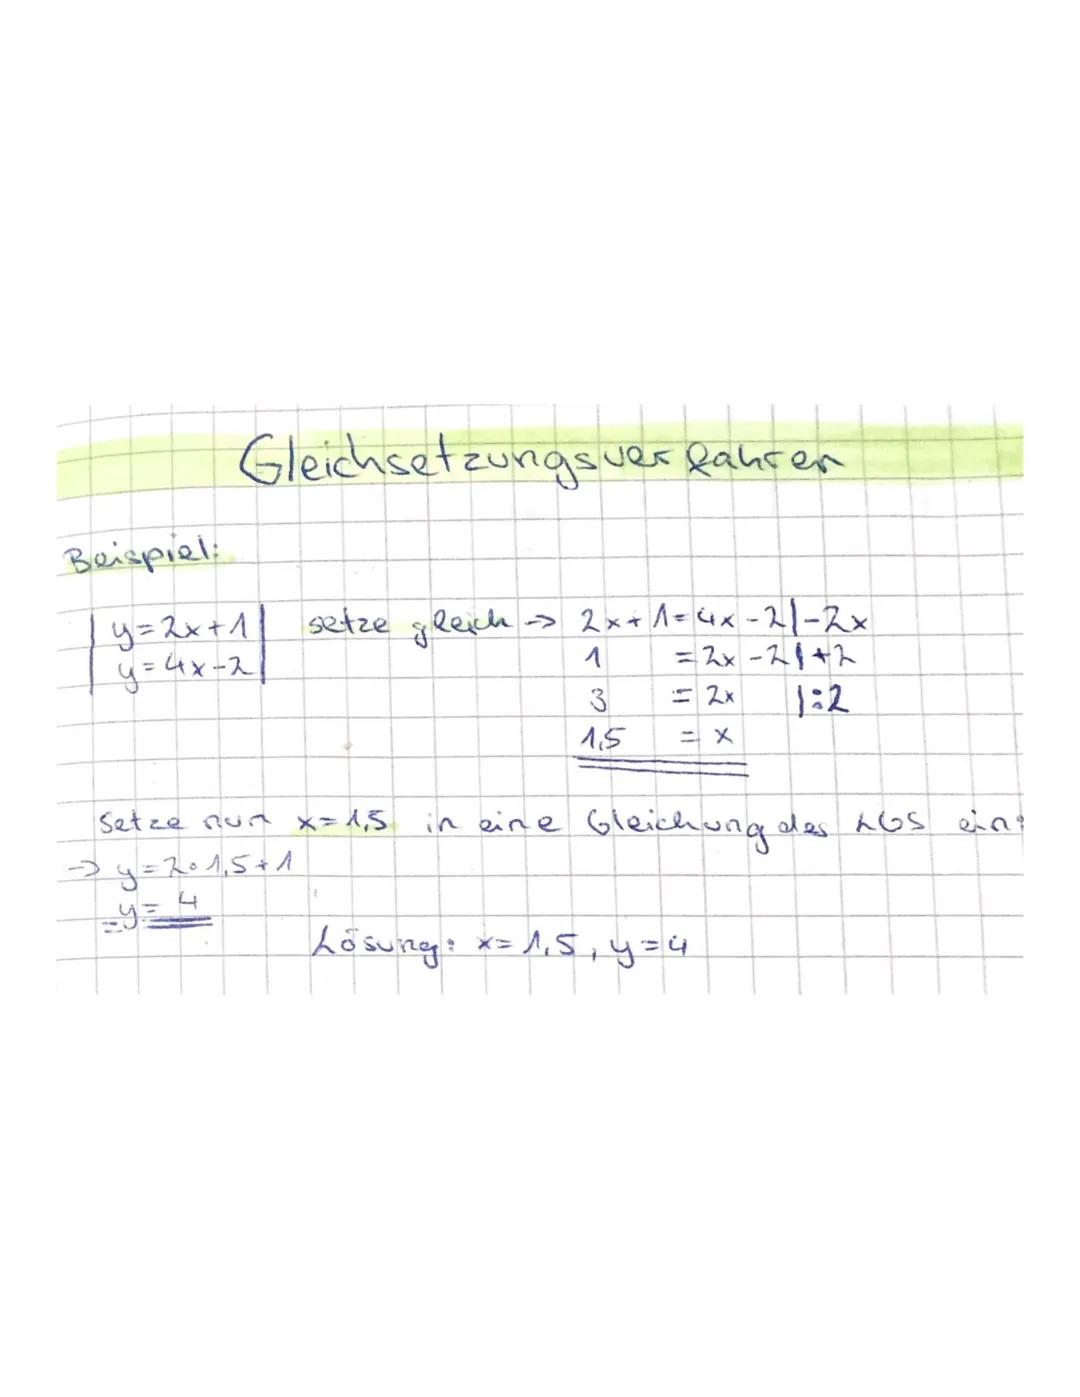 Gleichsetzungsverfahren
Beispiel:
| y=2x+1 | setze gleich → 2x+1=4x-2 |-2x
| y=4x-2 | 1 =2x-2 |+2
3 = 2x |:2
1,5 = x
Setze nun x=1,5 in eine Gleichung des LGS ein:
→ y=2·1,5+1
=y= 4
Lösung: x=1,5, y=4